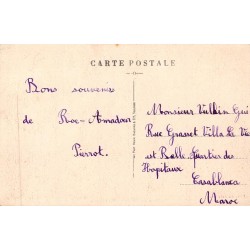 CARTE POSTALE
Bons souvenirs
de Roc-Amadour
Pierrot.
Monsieur Vullin
Rue Grasset Villa Le
et Quartier des
Hopitaux
Casablanca
Maroc